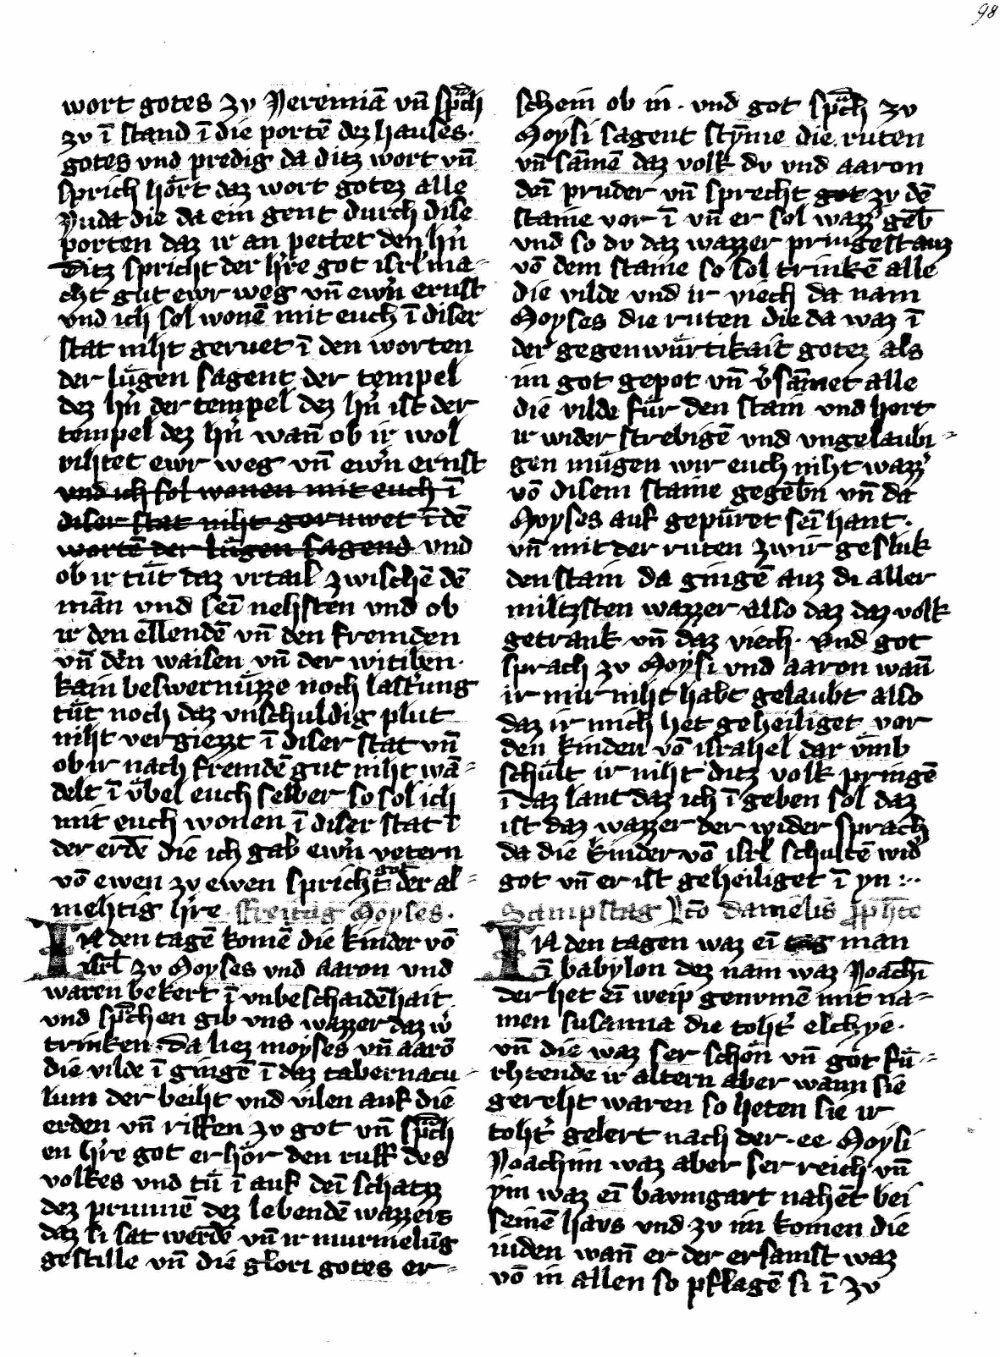 98
wort gotes zv Jeremiā vn̄ sp̄ch
zv ī stand ī die portē dez hauses·
gotes vnd predig da ditz wort vn̄
sprich hört daz wort gotez alle
Juda die da ein gent durch dise
porten daz ir an pettet den h̄n
Ditz spricht der h̄re got isr̄l ma-
cht gut ewr weg vn̄ ewn̄ ernst
vnd ich sol wonē mit euch ī diser
stat niht geruet ī den worten
der lügen sagent der tempel
dez h̄n der tempel dez h̄n ist der
tempel dez h̄n wan̄ ob ir wol
rihtet ewr weg vn̄ ewn̄ ernst
vnd ich sol wonen mit euch ī
diser stat niht geruwet ī dē
wortē der lügen sagend vnd
ob ir tüt daz vrtail zwischē dē
man vnd seī nehsten vnd ob
ir den ellendē vn̄ den fremden
vn̄ den waisen vn̄ der witiben·
kain beswernüzze noch lastrung
tüt noch daz vnschuldig plut
niht vergiezzt ī diser stat vn̄
ob ir nach fremdē gut niht wā-
delt ī übel euch selber so sol ich
mit euch wonen ī diser stat ī
der erdē die ich gab ewn̄ vetern
vō ewen zv ewen spricht got der al-
mehtig h̄re· Freitag Moyses·
IN den tagē komē die kinder vō
isr̄l zv Moyses vnd aaron vnd
waren bekert ī vnbeschaidēhait
vnd sp̄chen gib vns wazzer daz w̄
trinken· Da liez moyses vn̄ aarō
die vilde ī gingē ī daz tabernacu-
lum der beiht vnd vilen auf die
erden vn̄ riffen zv got vn̄ sp̄ch
en h̄re got erhör den ruff des
volkes vnd tü ī auf deī schatz
dez prunnē dez lebendē wazzers
daz si sat werdē vn̄ ir murmelūg
gestille vn̄ die glori gotes er-
schein ob in· vnd got sp̄ch zv
Moysi sagent stȳme die ruten
vn̄ sāmē daz volk dv vnd aaron
deī pruder vn̄ sprecht got zv dē
staine vor ī vn̄ er sol wazz̄ geb̄
vnd so dv daz wazzer pringest auz
vō dem staine so sol trinkē alle
die vilde vnd ir viech da nam
Moyses die ruten die da waz ī
der gegenwürtikait gotez als
im got gepot vn̄ v̄sāmet alle
die vilde für den stain vnd hort
ir wider strebigē vnd vngelaubi-
gen mügen wir euch niht wazz̄
vō disem staine gegebn̄ vn̄ da
Moyses auf gepüret seī hant·
vn̄ mit der ruten zwir gesluk
den stain da gingē auz di aller
miltzsten wazzer also daz daz volk
getrank vn̄ daz viech· vnd got
sprach zv Moysi vnd aaron wan̄
ir mir niht habt gelaubt also
daz ir mich het geheiliget vor
den kinden vō israhel dar v̄mb
schült ir niht ditz volk pringē
ī daz lant daz ich ī geben sol daz
ist daz wazzer der wider sprach
da die kinder vō isr̄l schultē wid̄
got vn̄ er ist geheiliget ī yn :·
Sampstag Lc̄o danielis ꝓph̄te
IN den tagen waz eī tag man
ī babylon dez nam waz Joachī
der het eī weip genvmen mit na-
men susanna die toht̄ elchye·
vn̄ die waz ser schön vn̄ got fü-
rhtende ir altern aber wann sie
gereht waren so heten sie ir
toht̄ gelert nach der·ee· Moysi
Joachim waz aber ser reich vn̄
ym waz eī bavmgart nahēt bei
seinē havs vnd zv im komen die
iuden wan̄ er der ersamst waz
vō in allen so pflagē si ī zv